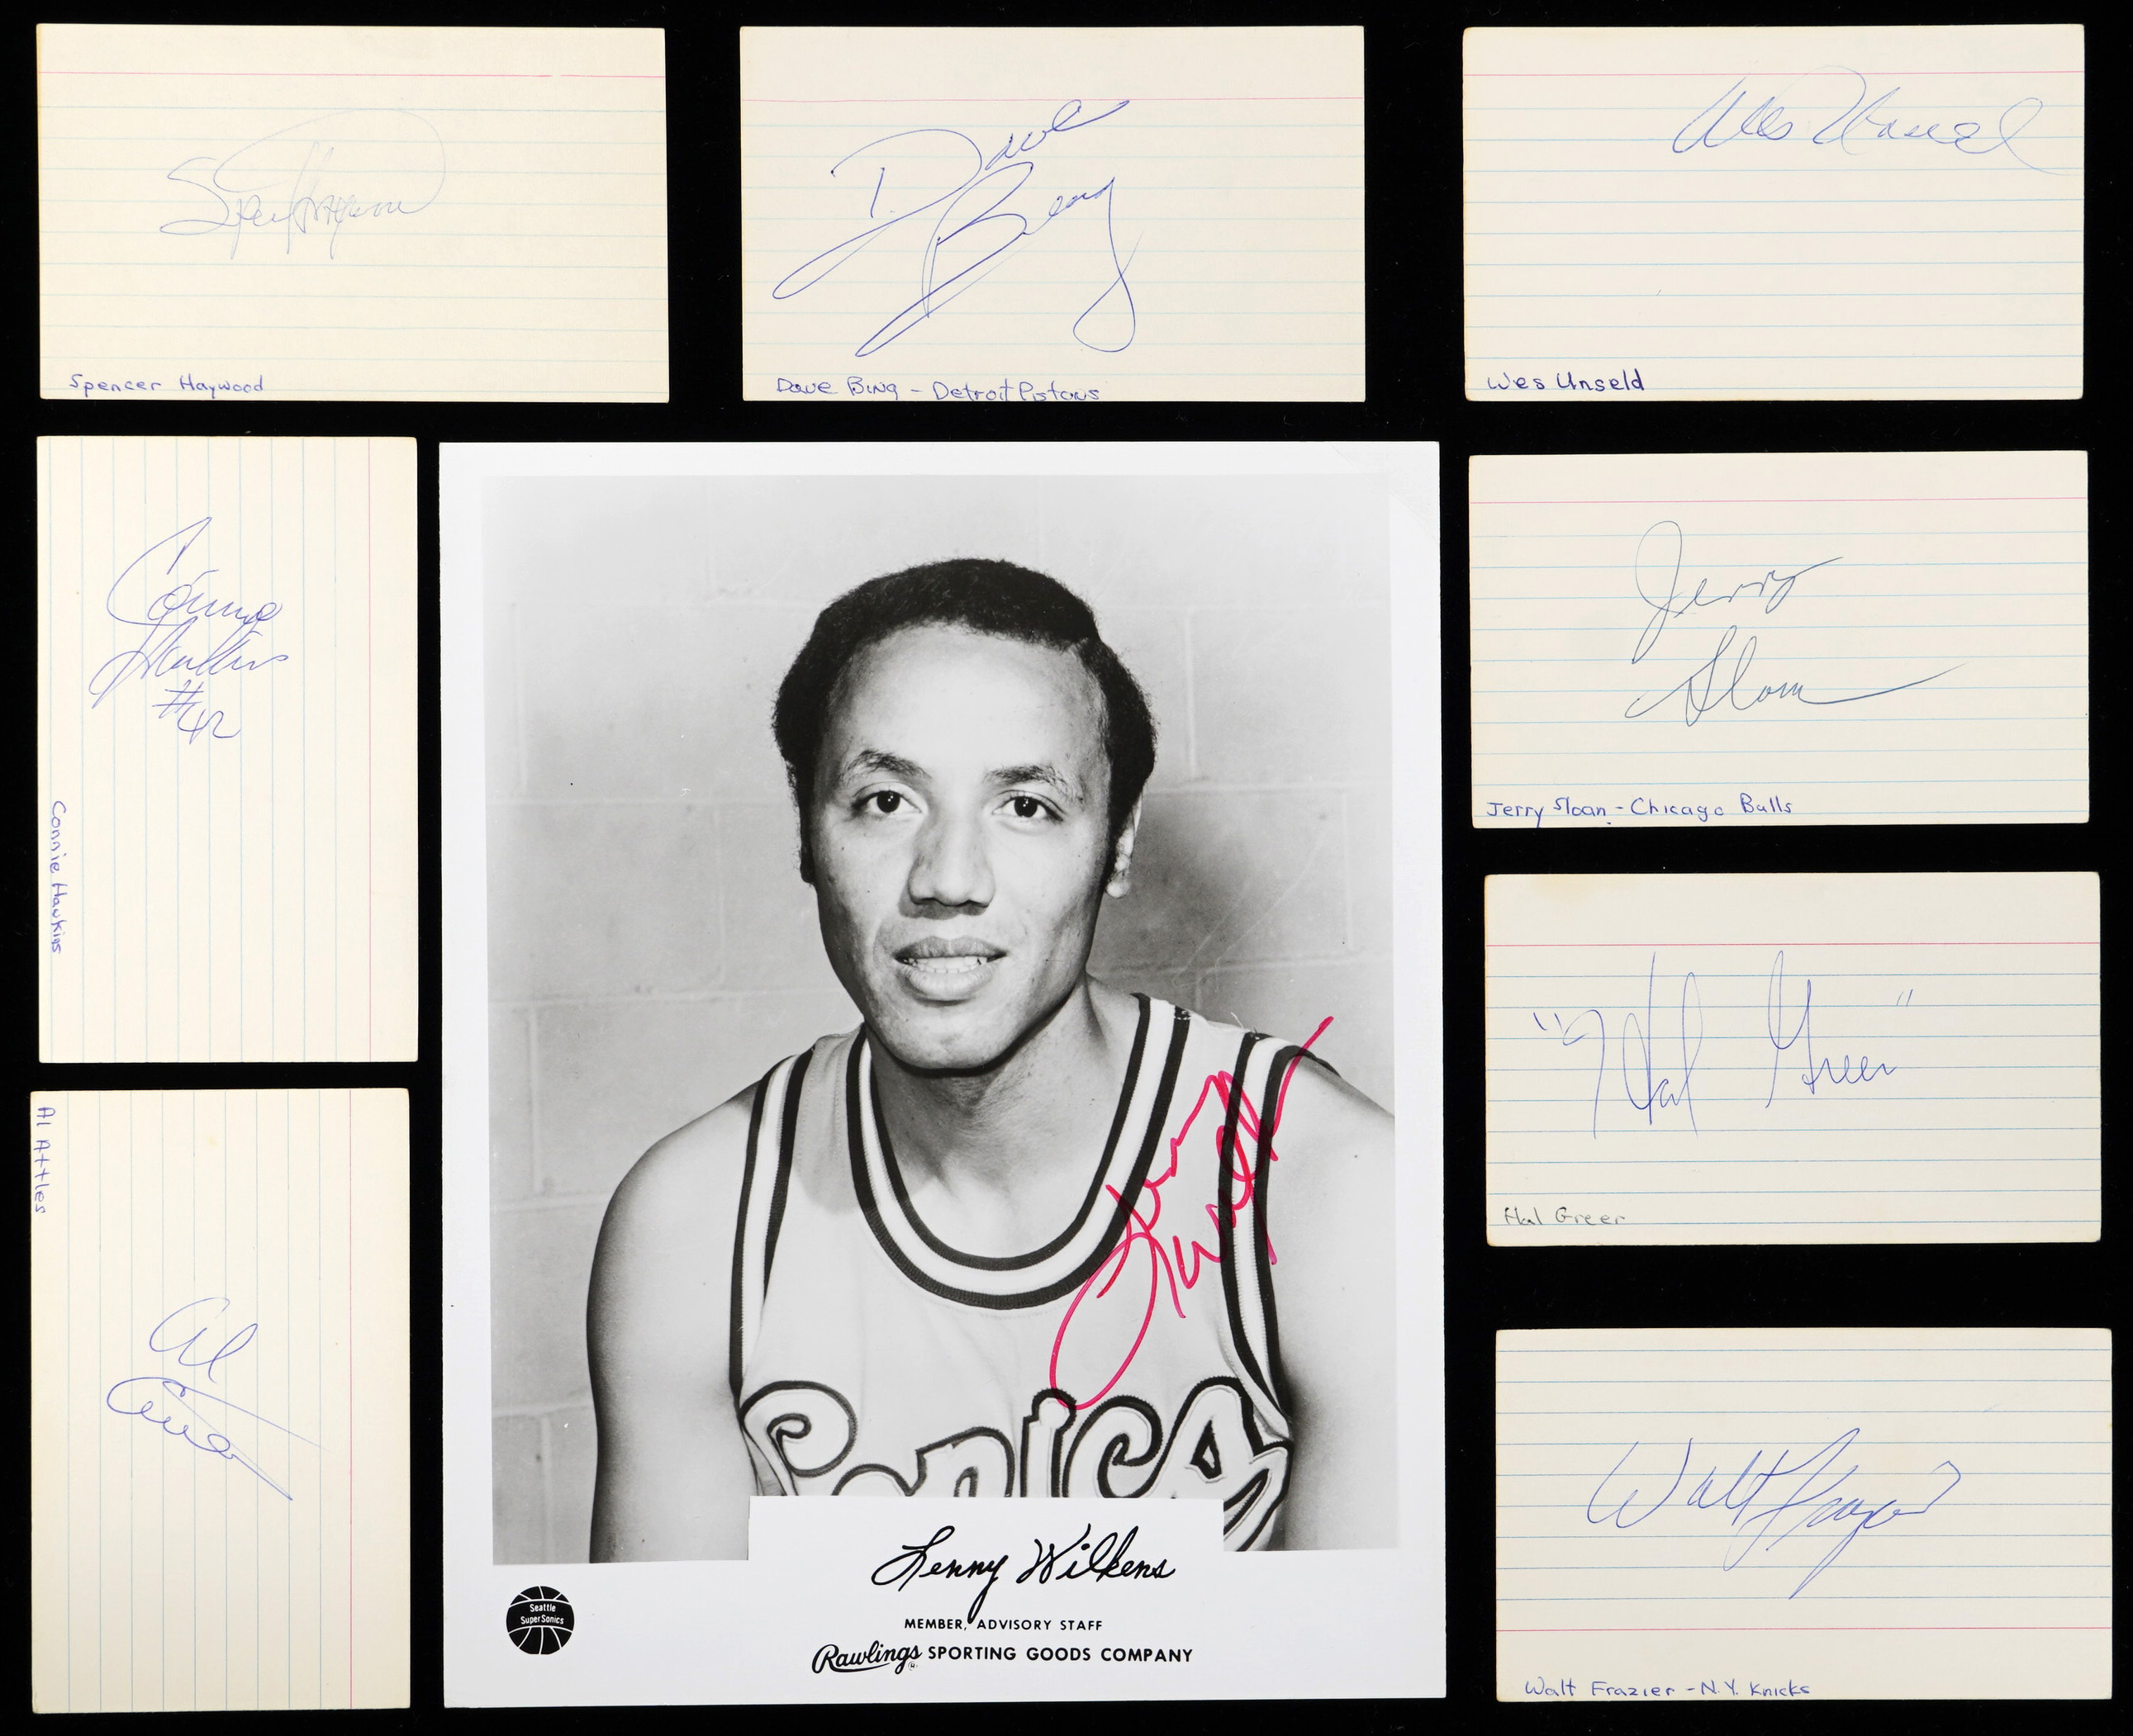 Spencer Haywood
Spencer Haywood
Dave
Bing
Dave Bing - Detroit Pistons
Wes Unseld
Wes Unseld
Connie
Hawkins
#42
Connie Hawkins
Jerry
Sloan
Jerry Sloan - Chicago Bulls
"Hal Greer"
Hal Greer
Al Attles
Al
Attles
Lenny
Wilkens
Sonics
Lenny Wilkens
Seattle
SuperSonics
MEMBER, ADVISORY STAFF
Rawlings SPORTING GOODS COMPANY
Walt Frazier
Walt Frazier - N.Y. Knicks